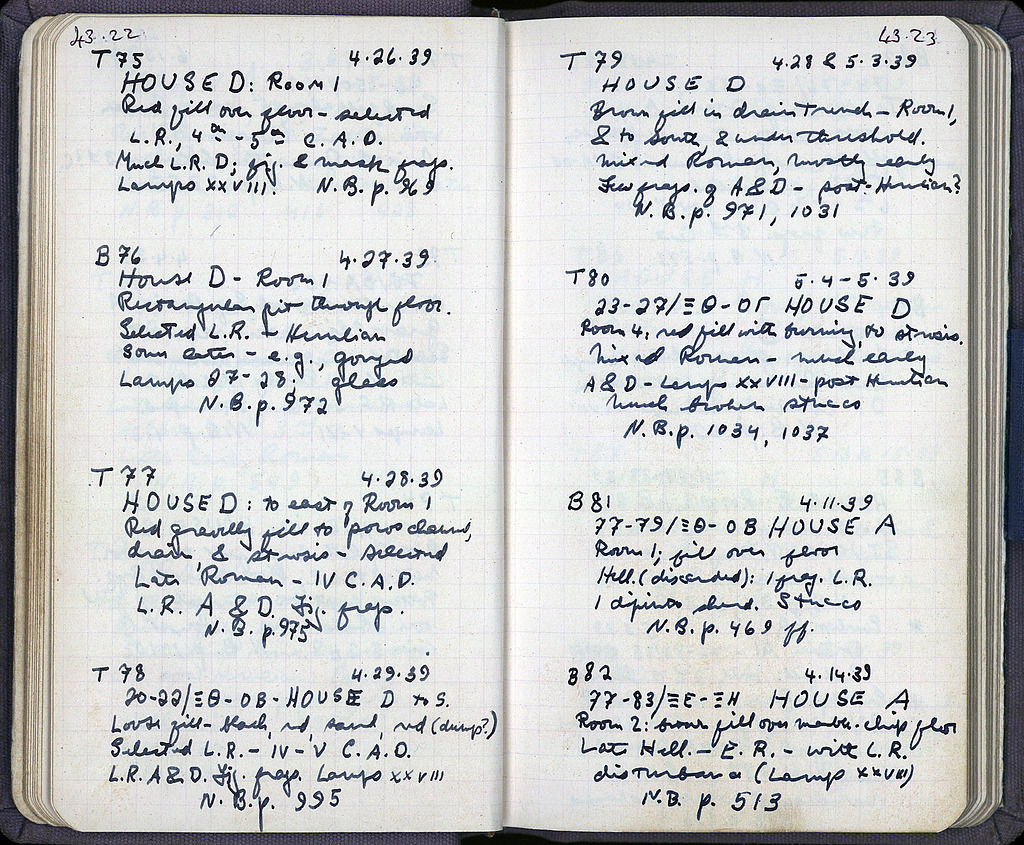 43.22
T 75 4.26.39
HOUSE D: Room 1
Red fill over floor - selected
L.R., 4th - 5th C. A.D.
Much L.R. D; fig. & mask frags.
Lamps XXVIII. N.B. p. 969
B 76 4.27.39
House D - Room 1
Rectangular pit through floor.
Selected L.R. - Herulian
Some later - e.g., gouged
Lamps 27-28; glass
N.B. p. 972
T 77 4.28.39
HOUSE D: to east of Room 1
Red gravelly fill to poros
drain, & strosis - selected
Late Roman - IV C. A.D.
L.R. A & D. Fig. frags.
N.B. p. 975
T 78 4.29.39
20-22/ΞΘ-ΟΒ - HOUSE D to S.
Loose fill - black, red, sand, red (dump?)
Selected L.R. - IV-V C. A.D.
L.R. A & D. Fig. frags. Lamps XXVIII
N.B. p. 995
43.23
T 79 4.28 & 5.3.39
HOUSE D
Brown fill in drain trench - Room 1,
& to south & under threshold.
Mixed Roman, mostly early
Few frags. of A & D - post-Herulian?
N.B. p. 971, 1031
T 80 5.4-5.39
23-27/ΞΘ-ΟΓ HOUSE D
Room 4, red fill with burning, to strosis.
Mixed Roman - much early
A & D - Lamps XXVIII - post Herulian
Much broken stucco
N.B. p. 1034, 1037
B 81 4.11.39
77-79/ΞΘ-ΟΒ HOUSE A
Room 1; fill over floor
Hell. (discarded): 1 frag. L.R.
1 dipinto sherd. Stucco
N.B. p. 469 ff.
B 82 4.14.39
77-83/ΞΕ-ΞΗ HOUSE A
Room 2: brown fill over marble-chip floor
Late Hell. - E.R. - with L.R.
disturbance (Lamp XXVIII)
N.B. p. 513